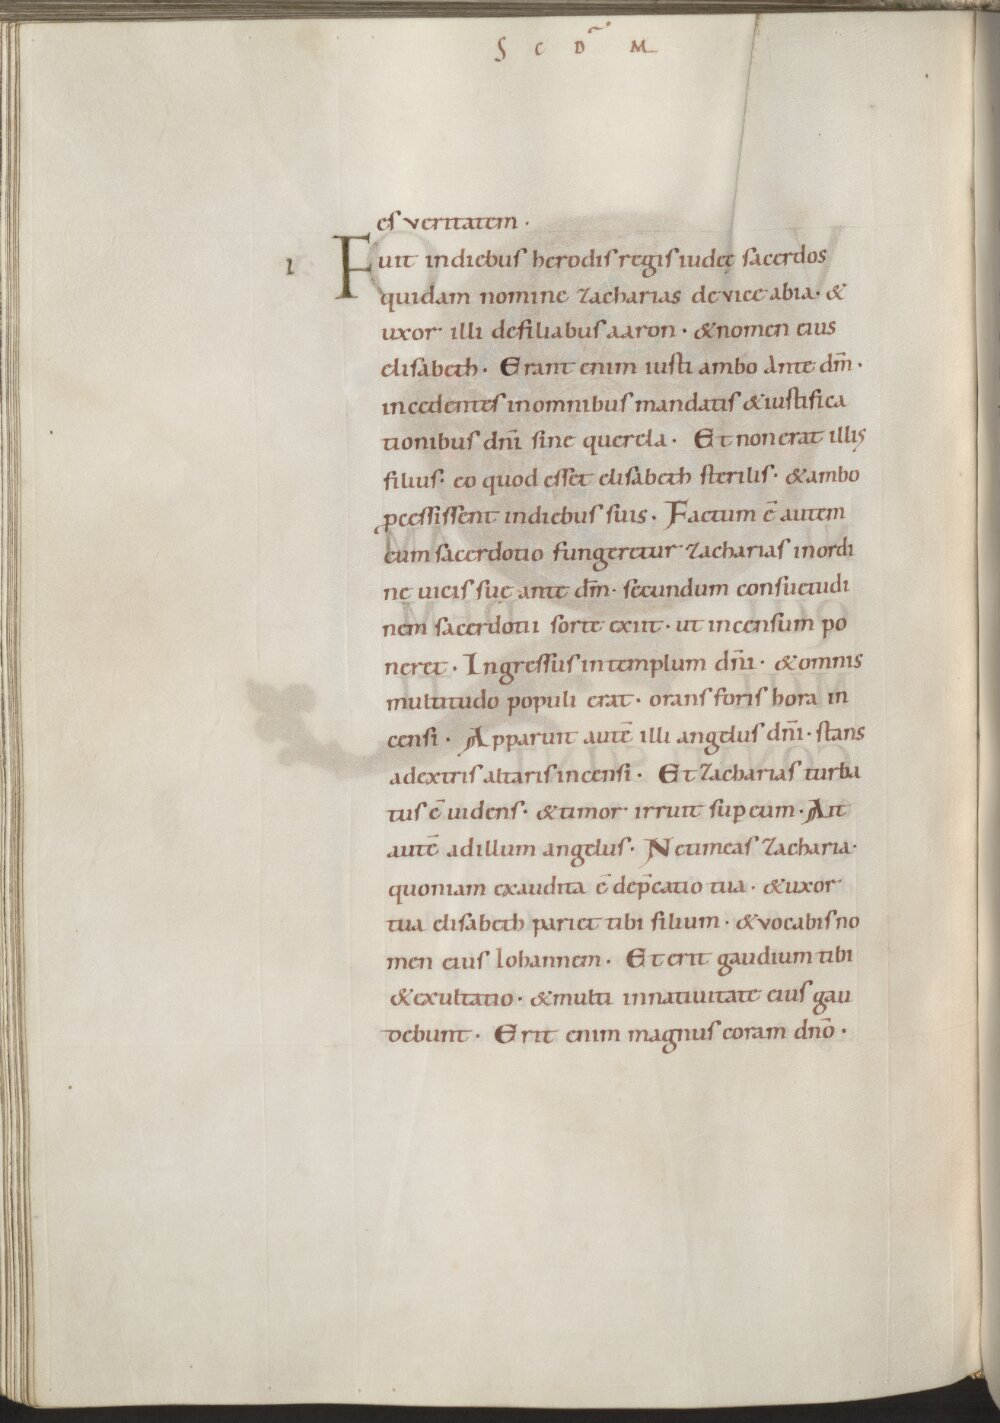 S C D̃ M
es veritatem ·
1 Fuit indiebus herodis regis iudeę sacerdos
quidam nomine zacharias de vice abia · &
uxor illi defiliabus aaron · & nomen eius
elisabeth · Erant enim iusti ambo ante dm̄ ·
incedentes inomnibus mandatis & iustifica
tionibus dn̄i sine querela · Et non erat illis
filius · eo quod esset elisabeth sterilis · & ambo
ꝓcessissent indiebus suis · Factum ē autem
cum sacerdotio fungeretur zacharias in ordi
ne uicis suę ante dm̄ · secundum consuetudi
nem sacerdotii sorte exiit · ut incensum po
neret · Ingressus in templum dn̄i · & omnis
multitudo populi erat · orans foris hora in
censi · Apparuit autē illi angelus dn̄i · stans
adextris altaris incensi · Et zacharias turba
tus ē uidens · & timor irruit suꝑ eum · Ait
autē adillum angelus · Ne timeas zacharia ·
quoniam exaudita ē dep̄catio tua · & uxor
tua elisabeth pariet tibi filium · & vocabis no
men eius Iohannem · Et erit gaudium tibi
& exultatio · & multi in nativitate eius gau
debunt · Erit enim magnus coram dn̄o ·